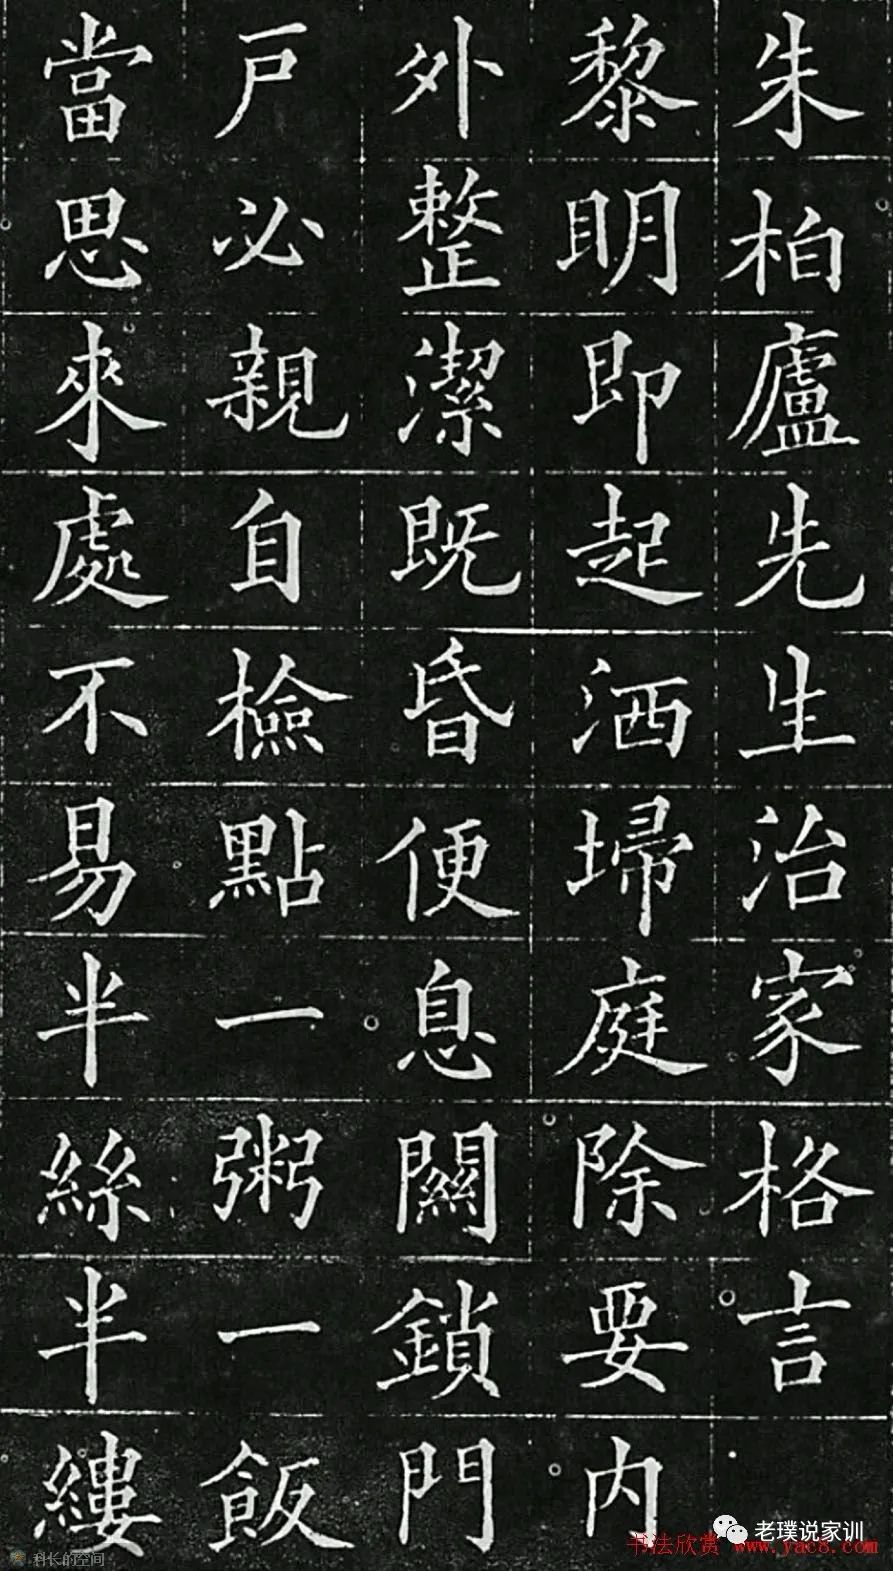 朱柏廬先生治家格言
黎明即起洒埽庭除要内
外整潔既昏便息關鎖門
戸必親自檢點一粥一飯
當思來處不易半絲半縷
老璞说家训
书法欣赏 www.yac8.com
科长的空间